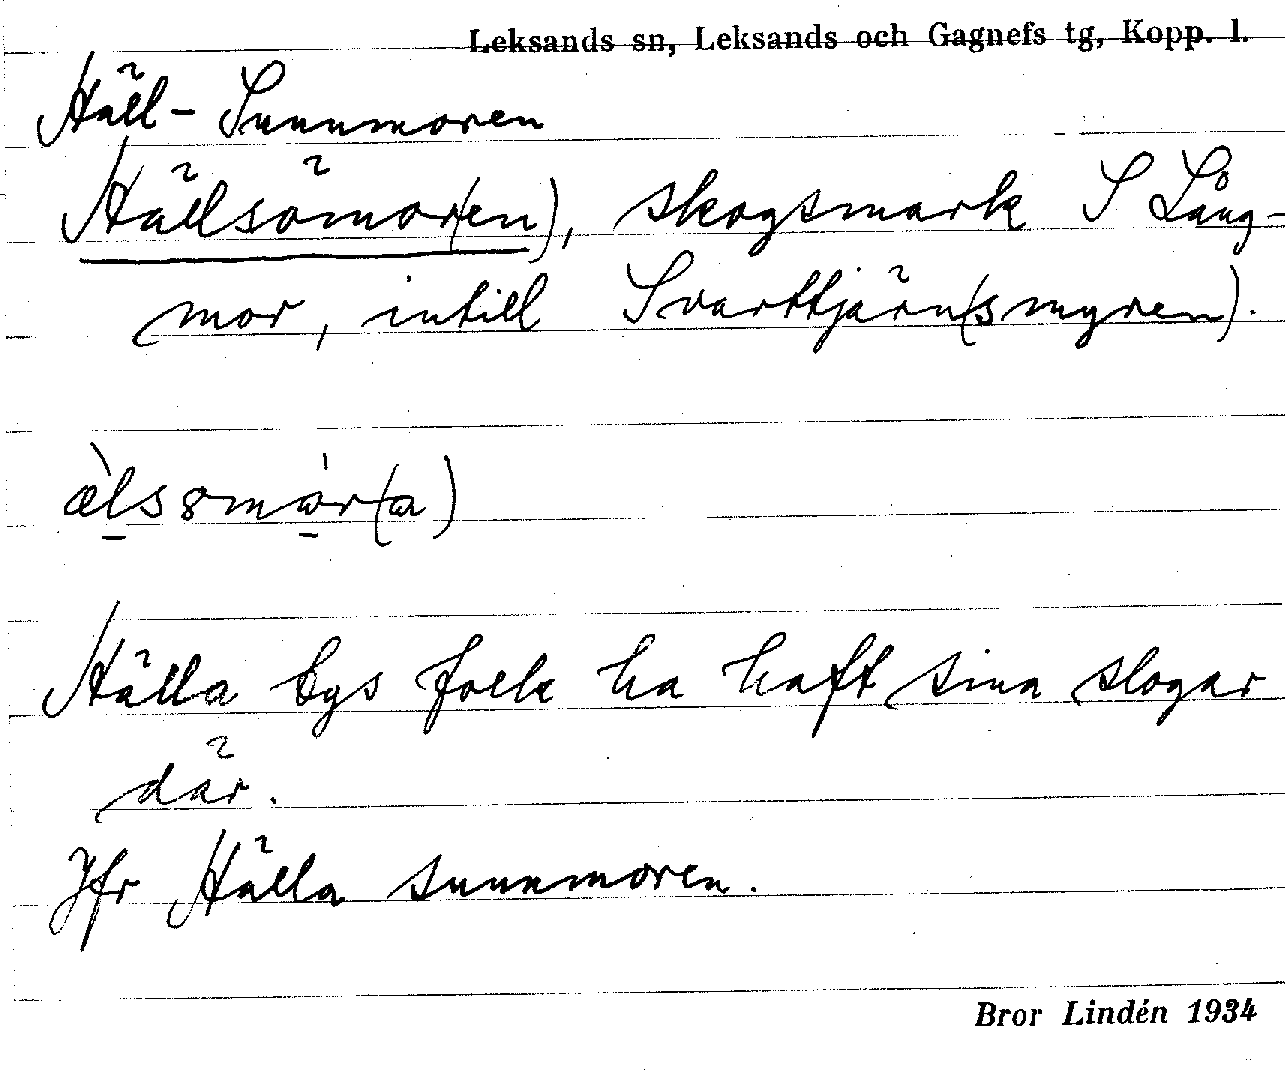 Leksands sn, Leksands och Gagnefs tg, Kopp. l.
Häll-Sunnmoren
Hällsömor(en), skogsmark S Lång-
mor, intill Svarttjärn(smyren).
Hälla bys folk ha haft sina slogar
där.
Jfr Hälla sunnmoren.
Bror Lindén 1934